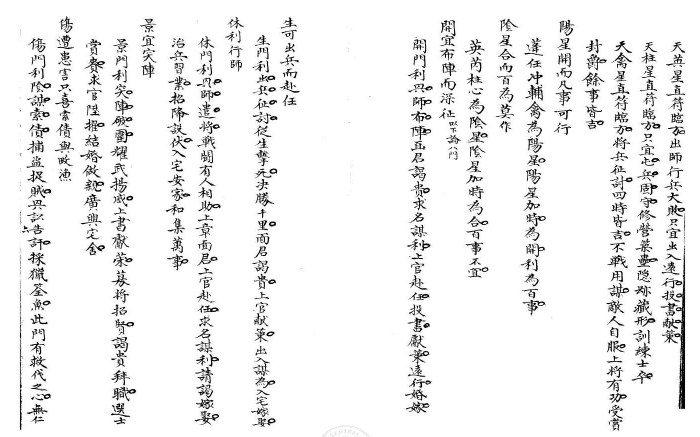 天英星直符臨方出師行兵大敗只宜出入遠行投書献策
天柱星直符臨方只宜屯兵固守修營築壘隐跡藏形訓練士卒
天禽星直符臨方將兵征討四時皆吉不戰用謀敵人自服上將有功受賞
封爵餘事皆吉
陽星開而凡事可行
蓬任冲輔禽為陽星陽星加時為開利為百事
陰星合而百為莫作
英芮柱心為陰星陰星加時為合百事不宜
開宜布陣而深征 以下論八門
開門利興師布陣面君謁貴求名謀利上官赴任投書獻策遠行婚嫁
生可出兵而赴任
生門利出兵征討從生擊死決勝千里面君謁貴上官献策出入謀為入宅嫁娶
休利行師
休門利興師遣將戰鬪有人相助上章面君上官赴任求名謀利請謁嫁娶
治兵習業招降設伏入宅安家和集萬事
景宜突陣
景門利突陣破圍耀武揚威上書獻策募將招賢謁貴拜職選士
賞賚求官陞擢結婚做親廣興宅舍
傷遭患害只喜索債與畋漁
傷門利陰謀索債捕盗捉賊興訟告訐採獵筌魚此門有救伐之心無仁